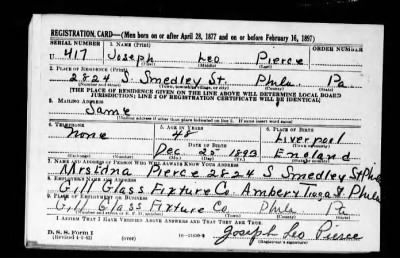 REGISTRATION CARD—(Men born on or after April 28, 1877 and on or before February 16, 1897)
SERIAL NUMBER 1. NAME (Print) ORDER NUMBER
U 417 Joseph Leo Pierce
(First) (Middle) (Last)
2. PLACE OF RESIDENCE (Print)
2824 S. Smedley St. Phila Pa
(Number and street) (Town, township, village, or city) (County) (State)
[THE PLACE OF RESIDENCE GIVEN ON THE LINE ABOVE WILL DETERMINE LOCAL BOARD
JURISDICTION; LINE 2 OF REGISTRATION CERTIFICATE WILL BE IDENTICAL]
3. MAILING ADDRESS
Same
[Mailing address if other than place indicated on line 2. If same insert word same]
4. TELEPHONE 5. AGE IN YEARS 6. PLACE OF BIRTH
None 48 Liverpool
DATE OF BIRTH
Dec 25 1893 England
(Exchange) (Number) (Mo.) (Day) (Yr.) (State or country)
7. NAME AND ADDRESS OF PERSON WHO WILL ALWAYS KNOW YOUR ADDRESS
Mrs Edna Pierce 2824 S Smedley St Phila
8. EMPLOYER'S NAME AND ADDRESS
Gill Glass Fixture Co. Amber & Tioga St Phila
9. PLACE OF EMPLOYMENT OR BUSINESS
Gill Glass Fixture Co Phila Pa
(Number and street or R. F. D. number) (Town) (County) (State)
I AFFIRM THAT I HAVE VERIFIED ABOVE ANSWERS AND THAT THEY ARE TRUE.
D. S. S. Form 1
(Revised 4-1-42) (over) Joseph Leo Pierce
(Registrant's signature)